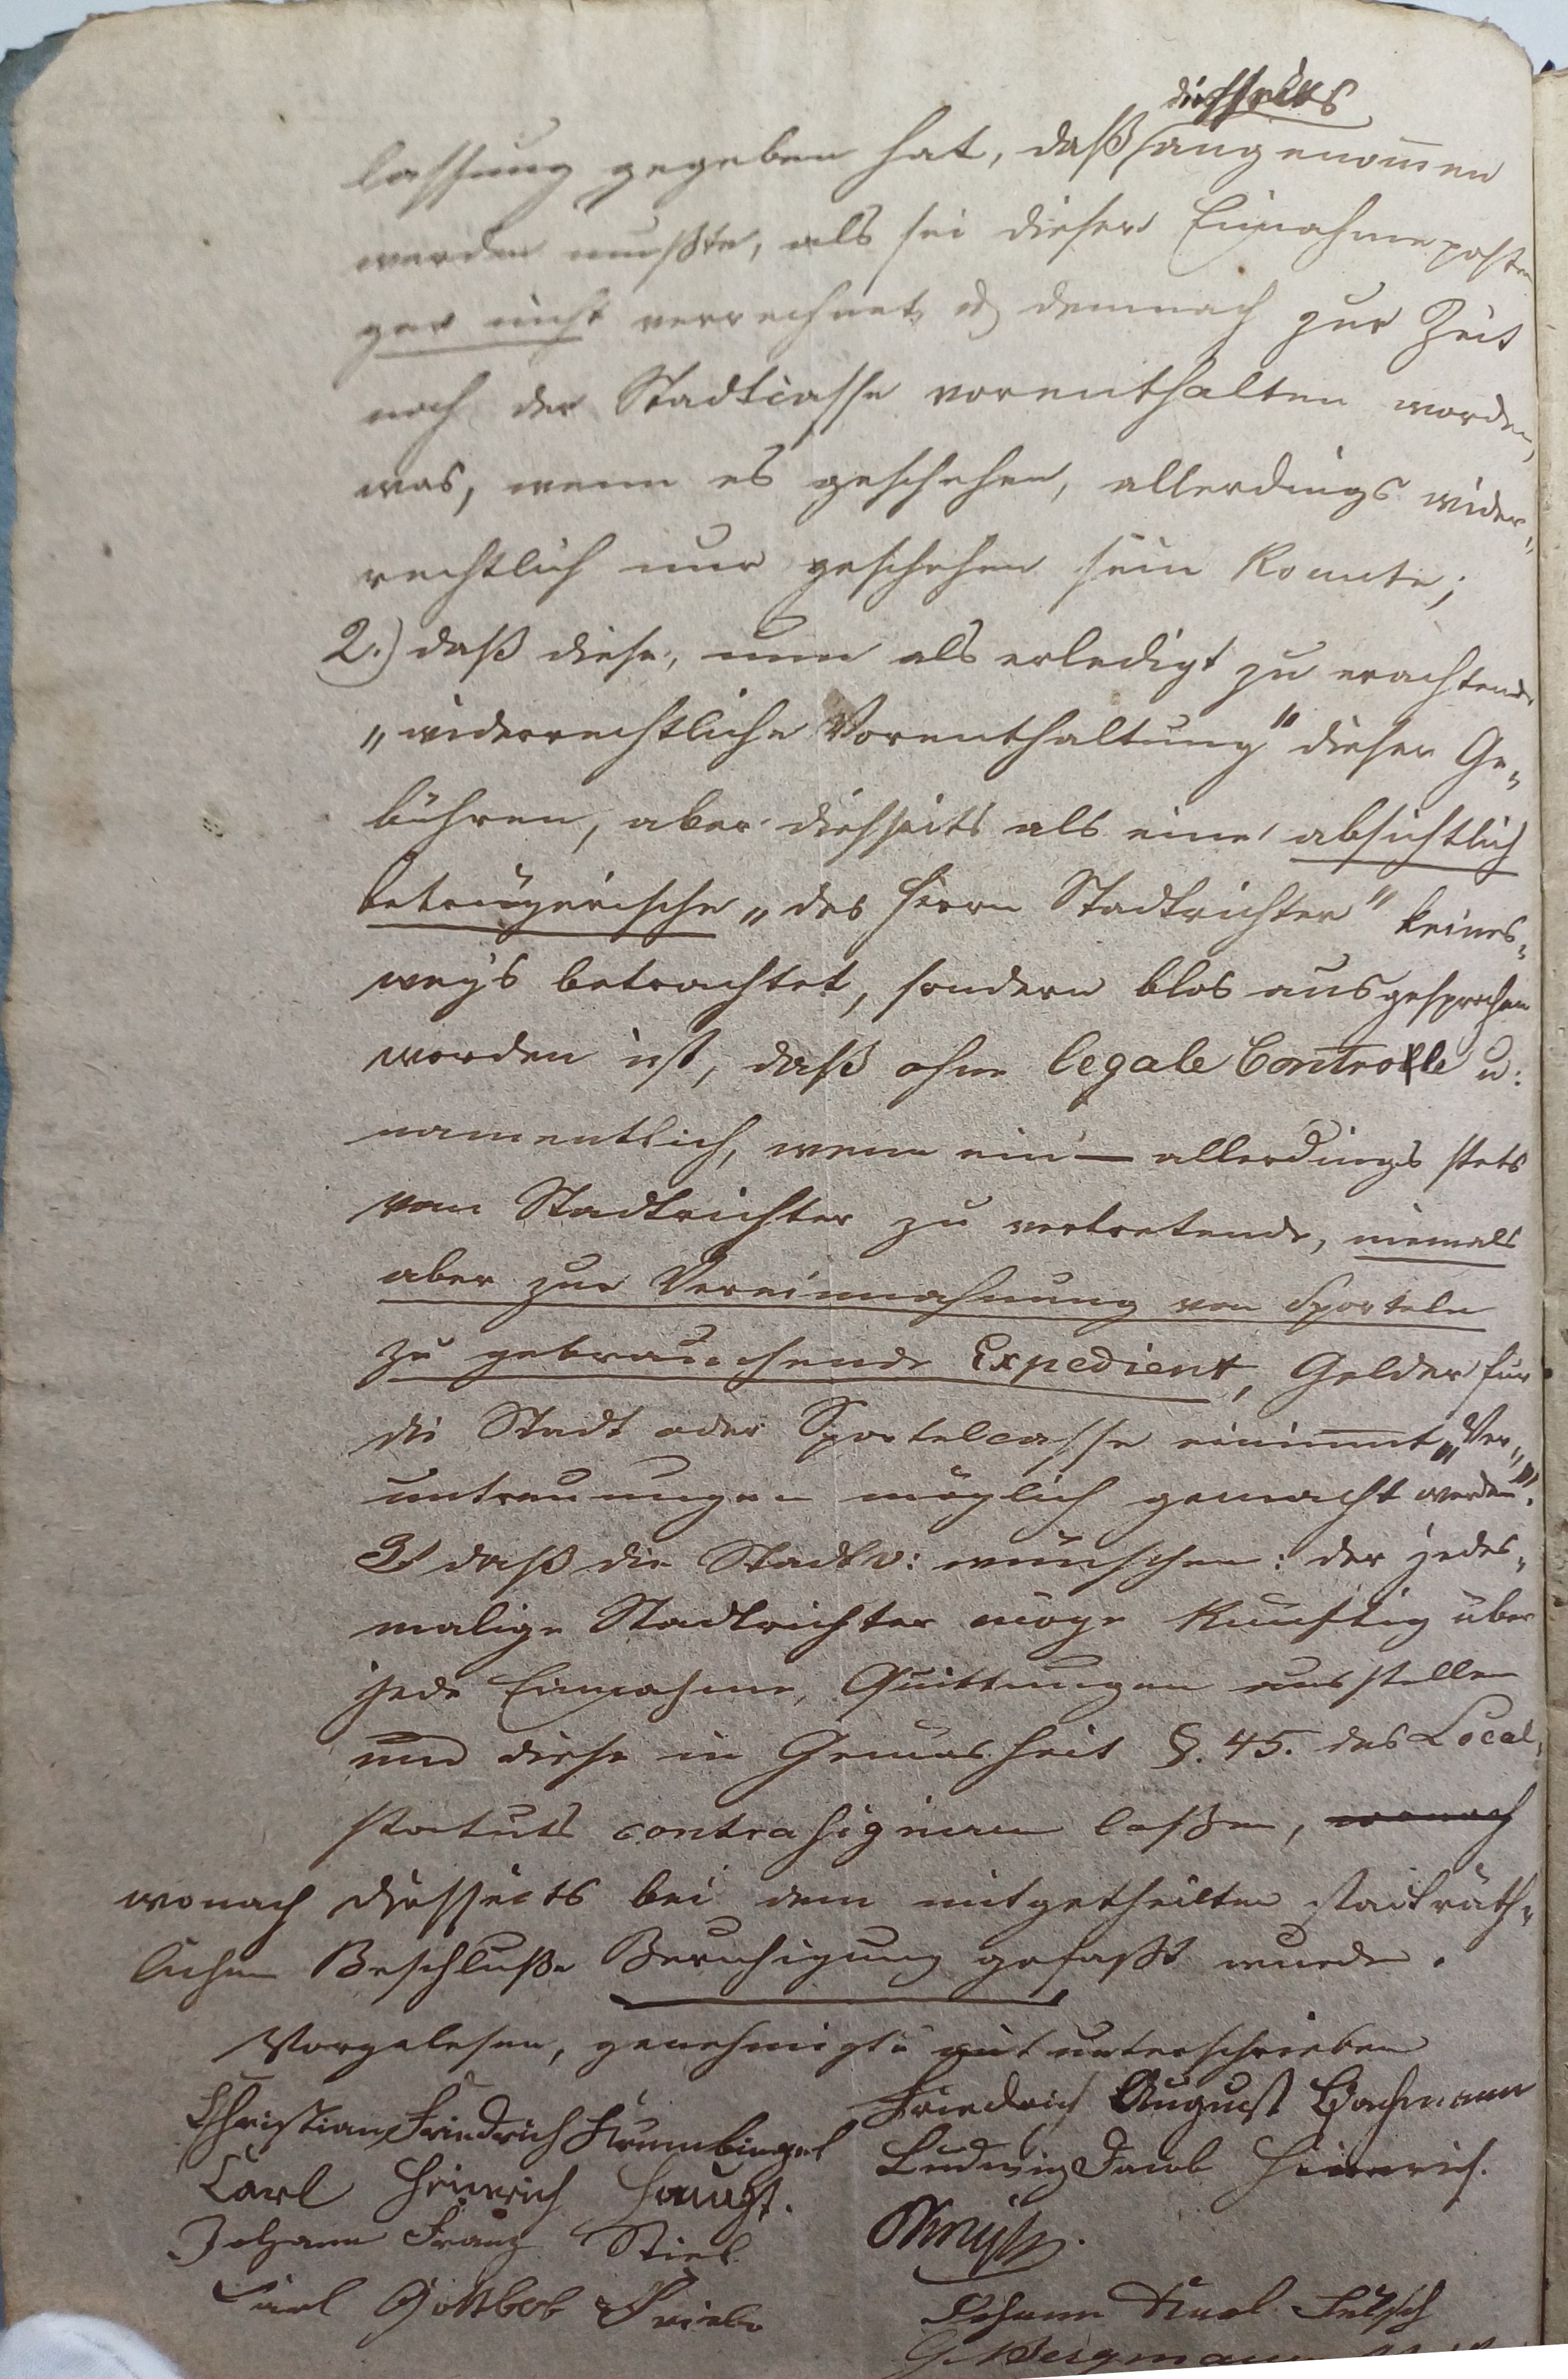 diesseits
lassung gegeben hat, daß angenom̅en
werden mußte, als sei dieser Einnahmeposten
gar nicht verrechnet, u. demnach zur Zeit
noch der Stadtcasse vorenthalten worden,
was, wenn es geschehen, allerdings wider-
rechtlich nur geschehen sein konnte;
2.) daß diese, nun als erledigt zu erachtende
„widerrechtliche Vorenthaltung" dieser Ge-
bühren, aber diesseits als eine absichtlich
betrügerische „des Herrn Stadtrichter" keines-
wegs betrachtet, sondern blos ausgesprochen
worden ist, daß ohne legale Controlle u:
namentlich, wenn ein — allerdings stets
vom Stadtrichter zu vertretende, niemals
aber zur Vereinnahmung von Sporteln
zu gebrauchende Expedient, Gelder für
die Stadt oder Sportelcasse einnim̅t, „Ver-
untreuungen möglich gemacht werden".
3) daß die Stadtv: wünschen: der jedes-
malige Stadtrichter möge künftig über
jede Einnahme, Quittungen ausstellen
und diese in Gemäsheit §. 45. des Local-
statuts contrasigniren laßen, wonach
wonach diesseits bei dem mitgetheilten stadträth-
lichen Beschluße Beruhigung gefaßt wurde.
Vorgelesen, genehmigt u mit unterschrieben
Christian Friedrich Krumbiegel
Friedrich August Bachmann
Carl Heinrich Haugk.
Ludwig Jacob Heinrich.
Johann Franz Stiel
Carl Gottlob Friebe
Johann Karl Fetzsch
G. Bergmann